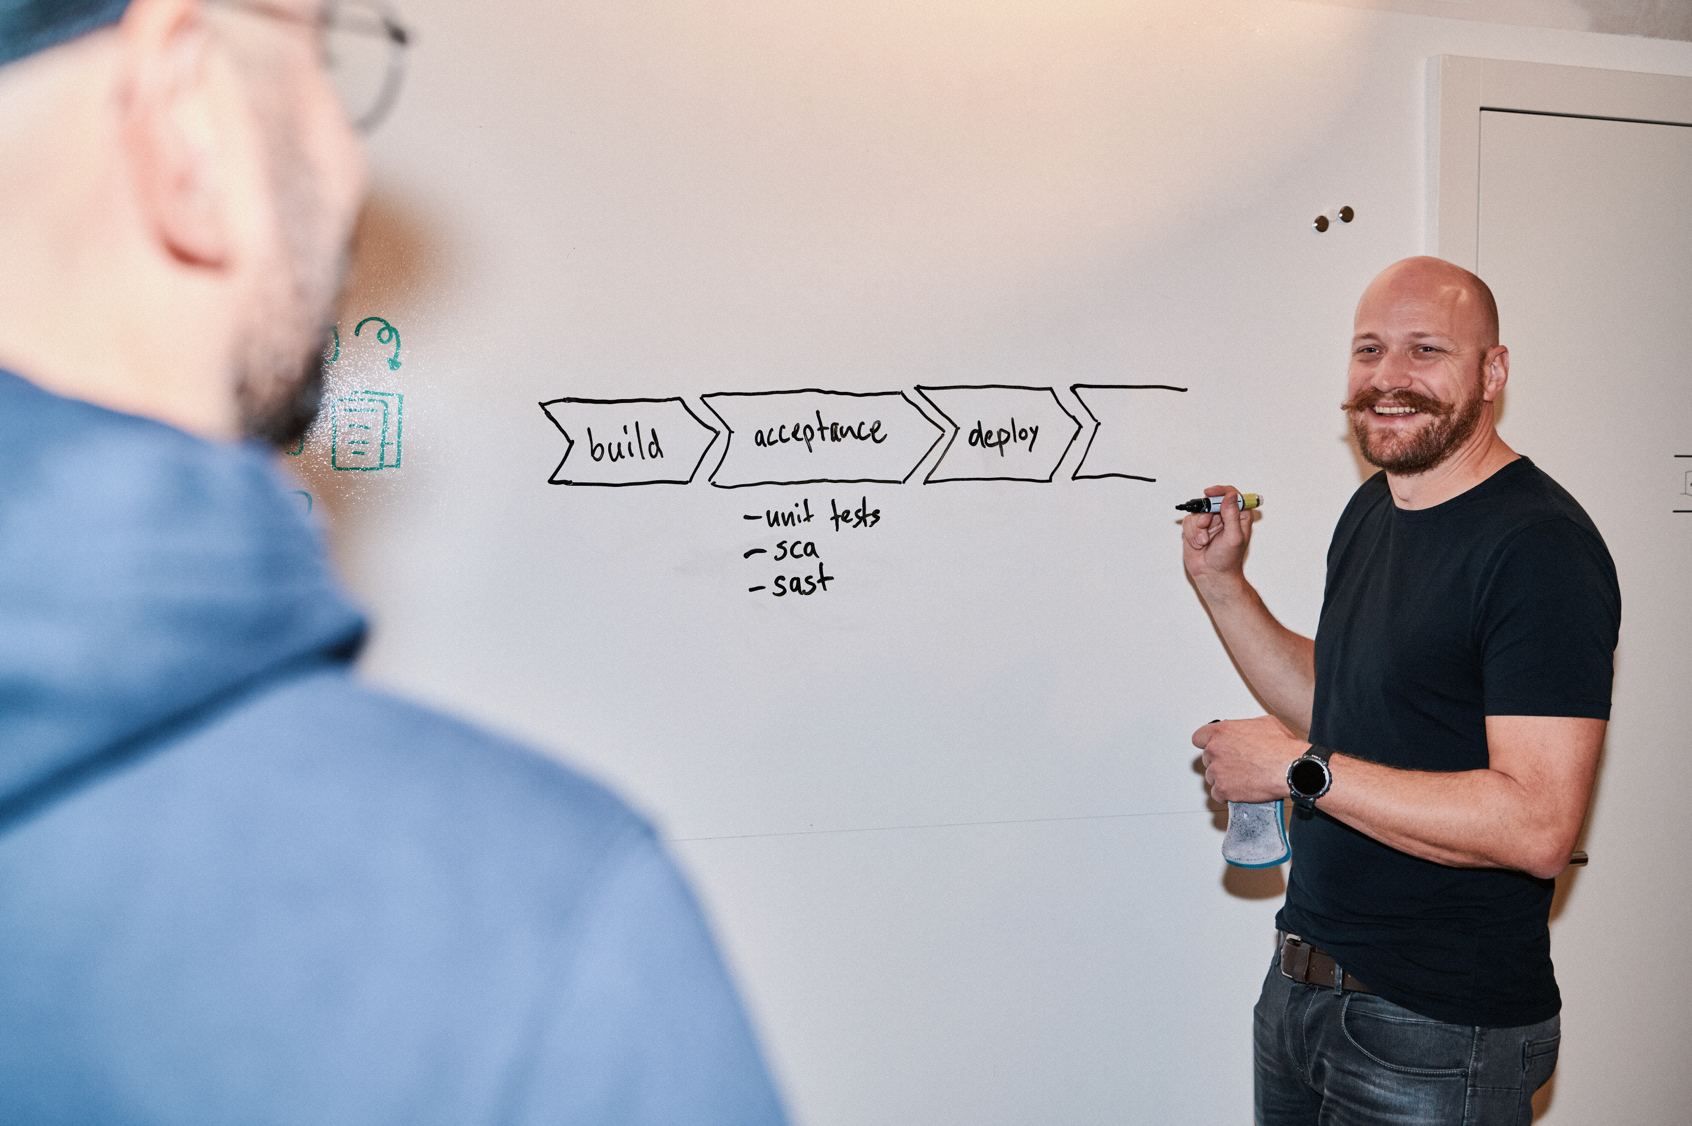 build acceptance deploy
- unit tests
- sca
- sast